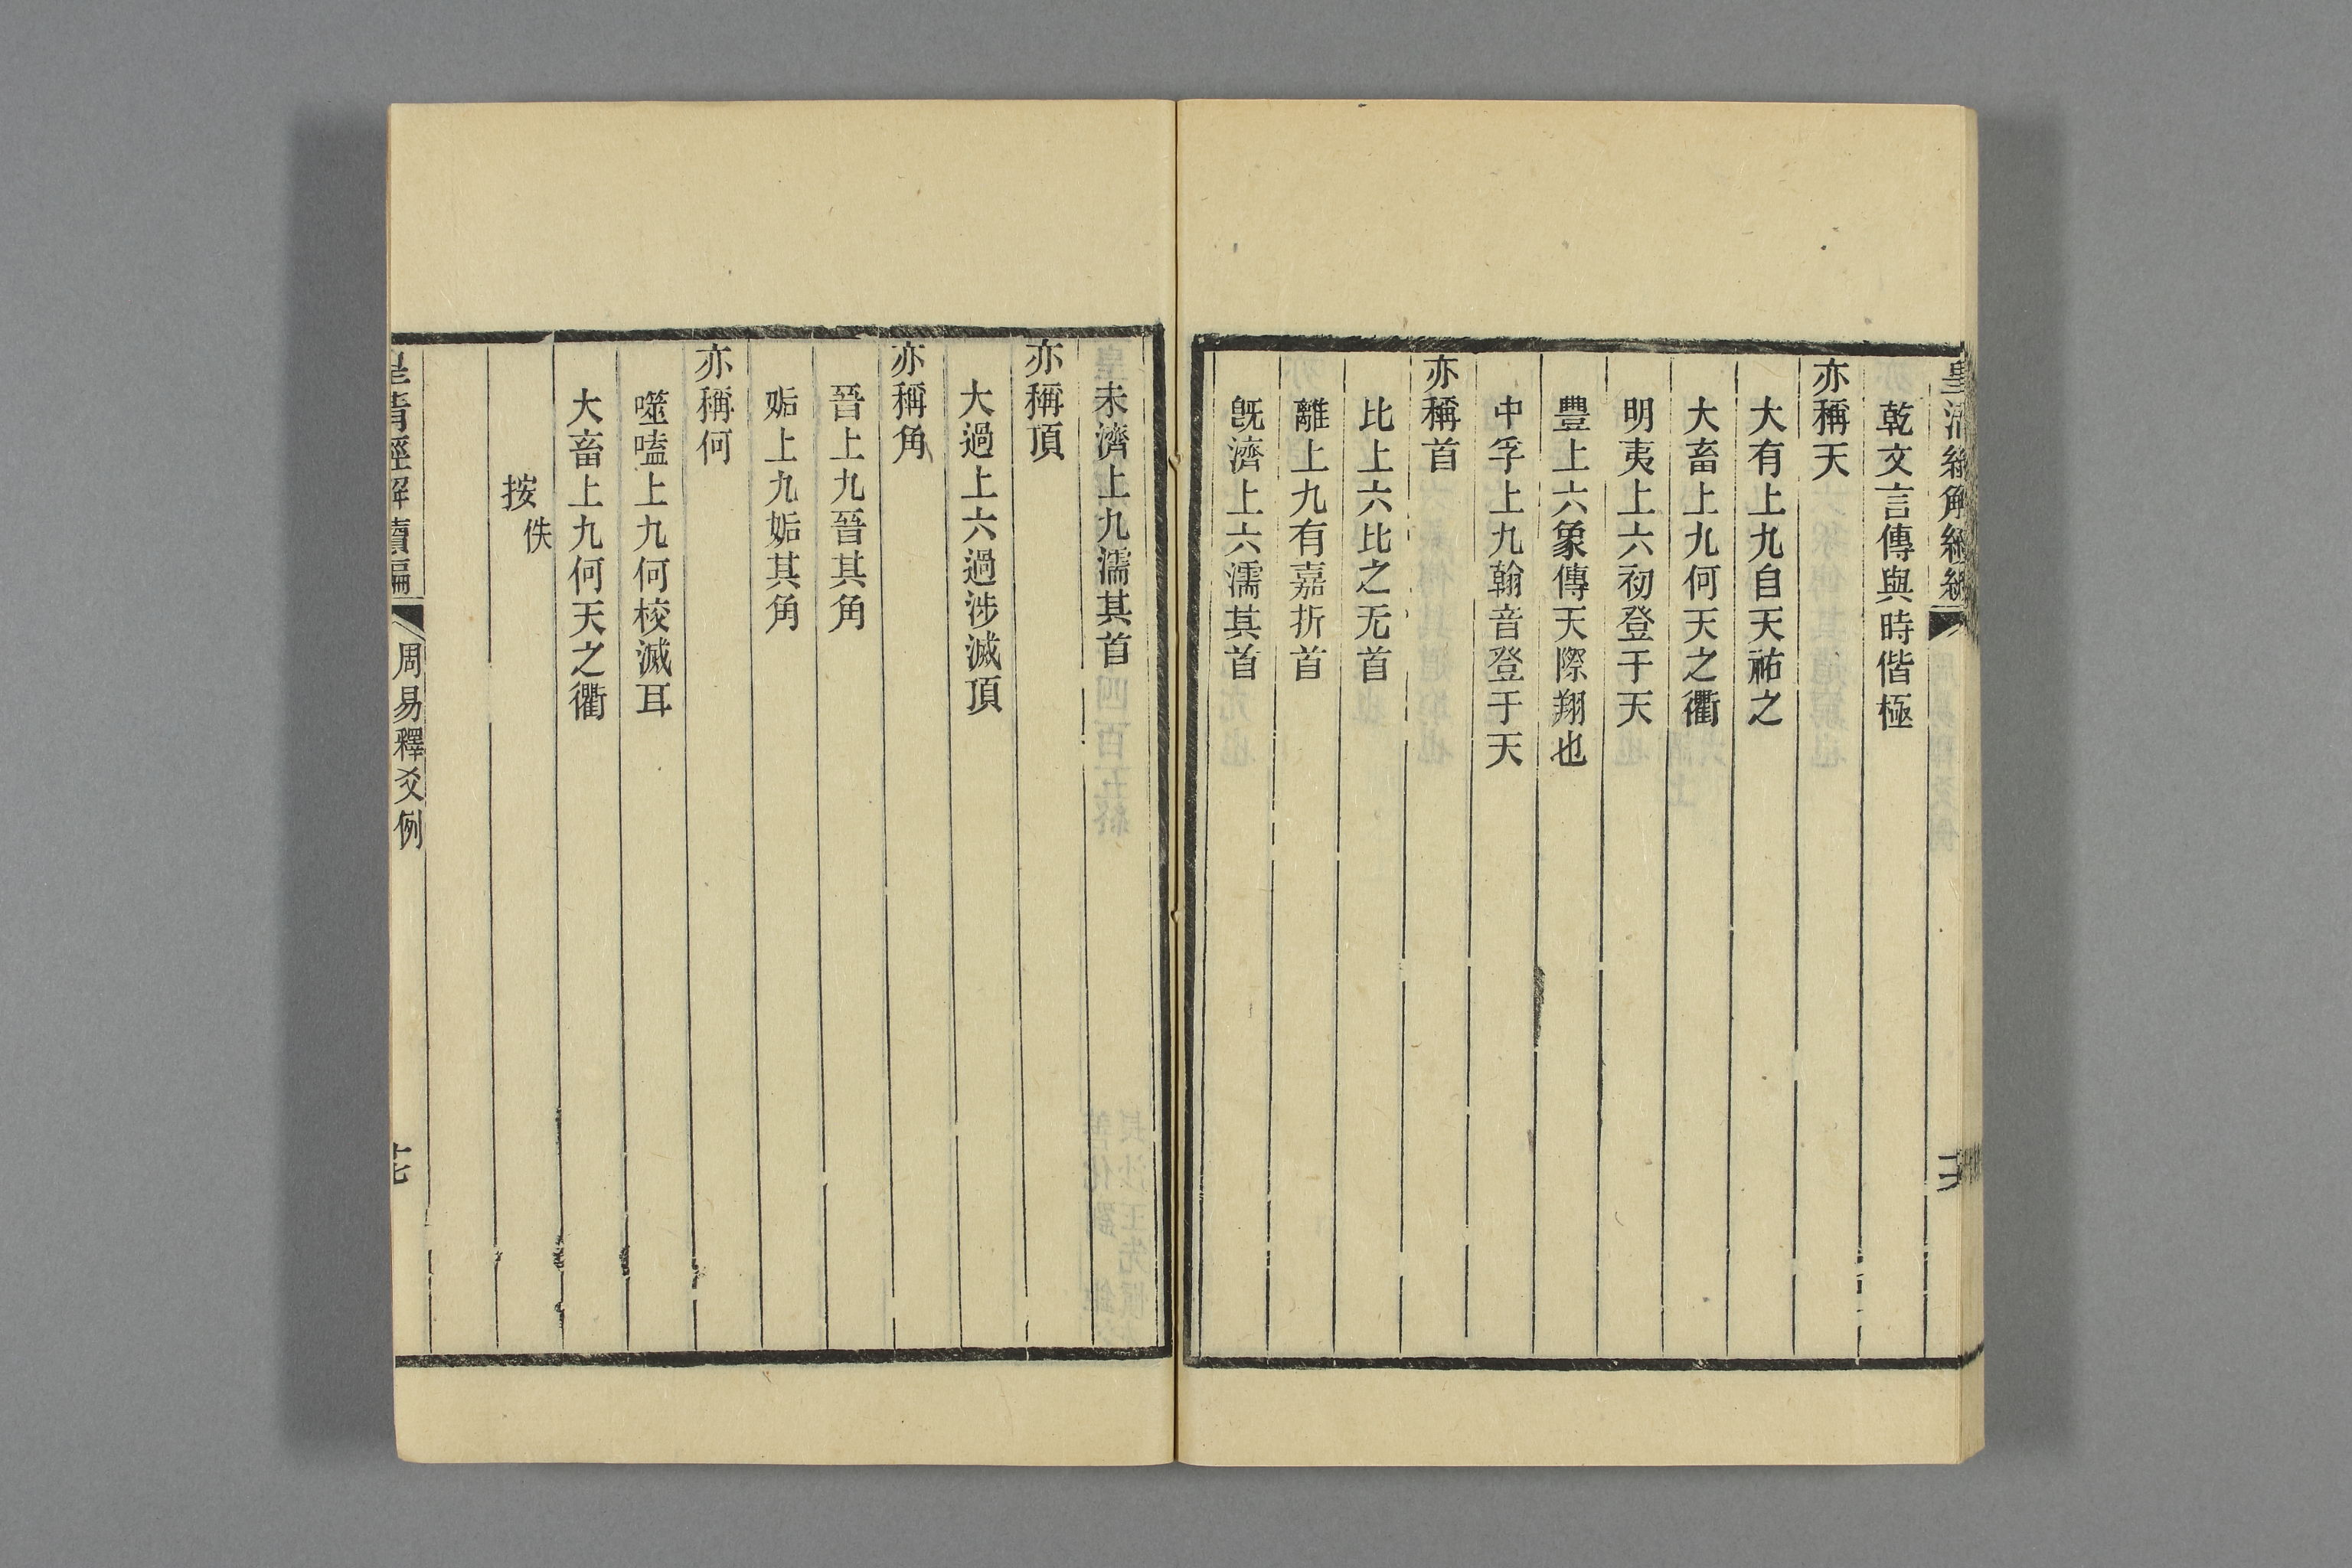 乾文言傳與時偕極
亦稱天
大有上九自天祐之
大畜上九何天之衢
明夷上六初登于天
豐上六象傳天際翔也
中孚上九翰音登于天
亦稱首
比上六比之无首
離上九有嘉折首
旣濟上六濡其首
未濟上九濡其首
亦稱頂
大過上六過涉滅頂
亦稱角
晉上九晉其角
姤上九姤其角
亦稱何
噬嗑上九何校滅耳
大畜上九何天之衢
按佚
皇清經解續編
周易釋爻例